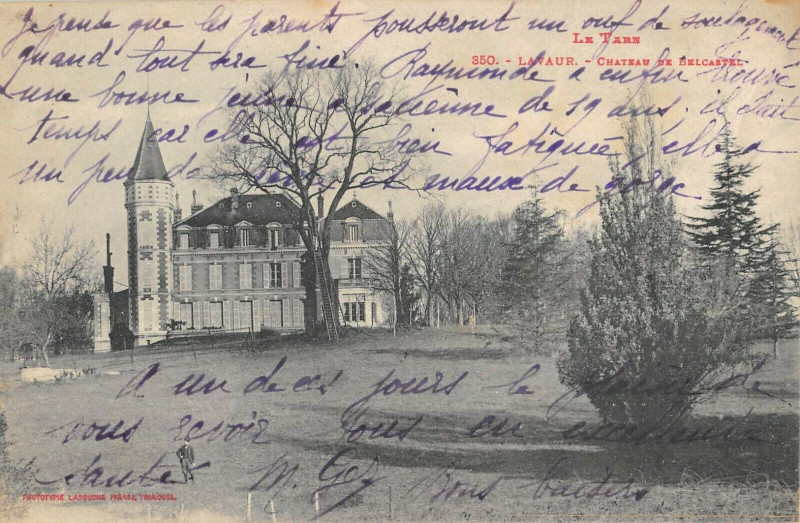 Je pense que les parents pousseront un ouf de soulagement
LE TARN
quand tout sera fini. Raymonde a enfin trouvé
350. - LAVAUR. - CHATEAU DE BELCASTEL
une bonne jeune alsacienne de 19 ans. il était
temps car elle est bien fatiguée, elle a
un peu de et maux de gorge
A un de ces jours le plaisir de
vous revoir tous en excellente
santé. M. Bons baisers
PHOTOTYPIE LABOUCHE FRÈRES, TOULOUSE.